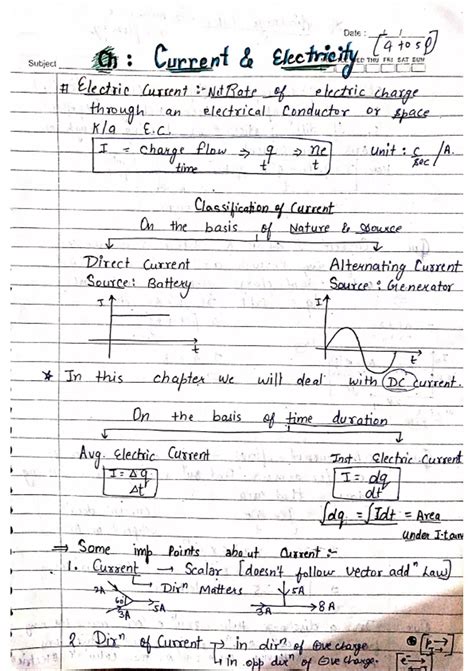 Date :
[4 to 5 p]
Subject Ch : Current & Electricity WED THU FRI SAT SUN
# Electric Current :- Net Rate of electric charge
through an electrical Conductor or space
K/a E.C.
I = charge flow / time → q/t → ne/t Unit : C/sec /A.
Classification of Current
On the basis of Nature & Source
Direct Current Alternating Current
Source : Battery Source : Generator
I I
t t
* In this chapter we will deal with DC current.
On the basis of time duration
Avg. Electric Current Inst. Electric Current
I = Δq/Δt I = dq/dt
∫dq = ∫Idt = Area
under I-t
→ Some imp Points about Current :-
1. Current → Scalar [doesn't follow vector addⁿ Law]
→ Dirⁿ Matters
2A 60 5A 3A 5A 3A 8A
2. Dirⁿ of Current → in dirⁿ of ⊕ve charge
→ in opp dirⁿ of ⊖ve charge